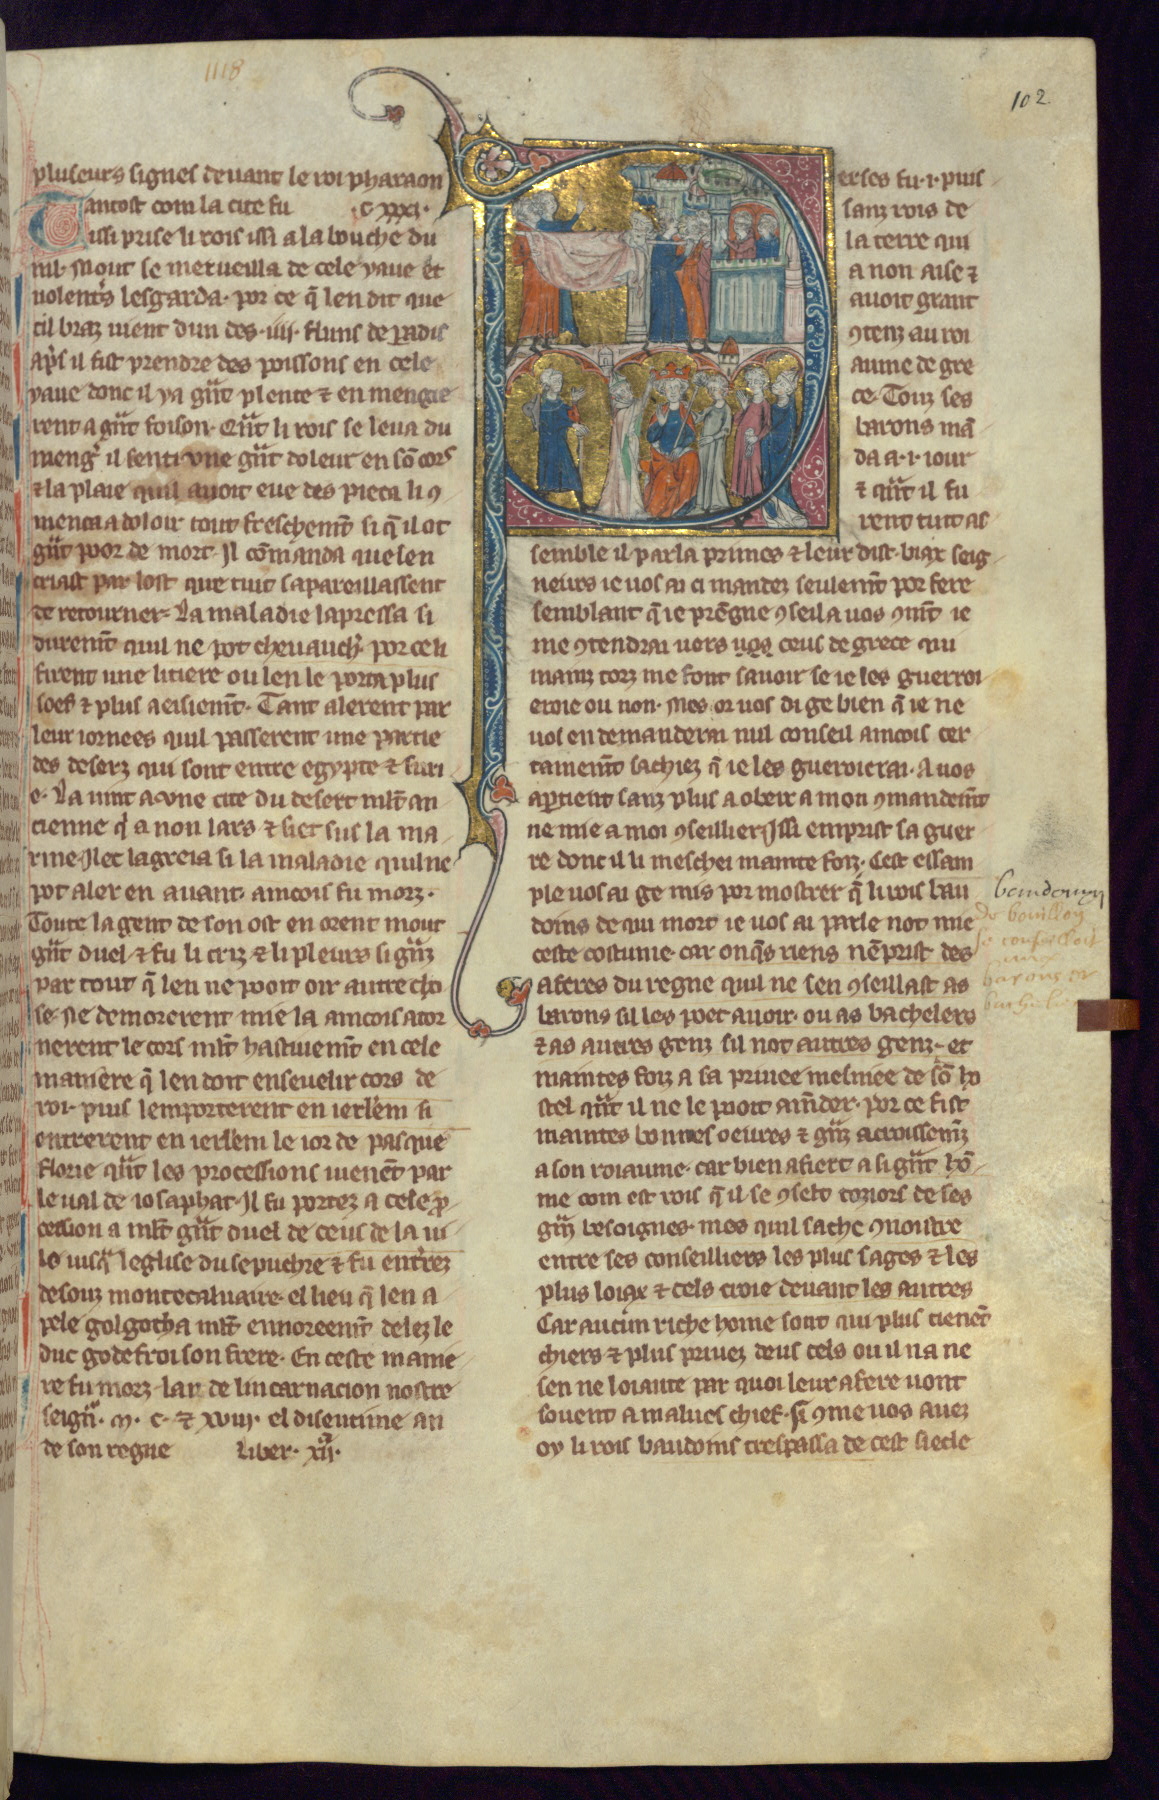 1118
102
pluseurs signes deuant le roi pharaon
Tantost com la cite fu .c. xxxi.
ussi prise li rois issi a la bouche du
nil. Mout se merueilla de cele yaue et
uolentˢs lesgarda. por ce q̃ len dit que
cil braz uient dun des .iiii. fluns de paradis
ap̃s il fist prendre des poissons en cele
yaue donc il ya gñt plente ⁊ en mengie
rent a gñt foison. Qñt li rois se leua du
meng̃ il senti vne gñt doleur en sõ cors
⁊ la plaie quil auoit eue des pieca li ꝯ
menca a doloir tout freschemẽt si q̃ il ot
gñt poor de mort. Il cõmanda que len
criast par lost que tuit sapareillassent
de retourner. La maladie lapressa si
duremẽt quil ne pot cheuauch̃. por ce li
firent une litiere ou len le porta plus
soef ⁊ plus aeisiemẽt. Tant alerent par
leur iornees quil passerent une partie
des deserz qui sont entre egypte ⁊ suri
e. La uint a vne cite du desert mlt̃ an
cienne q̃ a non lars ⁊ siet sus la ma
rine. Ilec lagreia si la maladie quil ne
pot aler en auant. aincois fu morz.
Toute la gent de son ost en orent mout
gñt duel ⁊ fu li criz ⁊ li pleurs si gñz
par tout q̃ len ne pooit oir autre cho
se. Ne demorerent mie la aincois ator
nerent le cors mlt̃ hastiuemẽt en cele
maniere q̃ len doit enseuelir cors de
roi. puis lemporterent en ierlem̃ si
entrerent en ierlem̃ le ior de pasque
florie qñt les processions uienẽt par
le ual de iosaphat. Il fu portez a cele ꝓ
cession a mlt̃ gñt duel de ceus de la ui
le iusq̃ leglise du sepuchre ⁊ fu entˢrez
desouz montecaluaire. el lieu q̃ len a
pele golgotha mlt̃ ennoreemẽt delez le
duc godefroi son frere. En ceste manie
re fu morz lan de lincarnacion nostre
seign̄. m. c. ⁊ xviii. el diseutime an
de son regne Liber. xii.
erses fu .i. puis
sanz rois de
la terre qui
a non aise ⁊
auoit grant
ꝯtenz au roi
aume de gre
ce. Touz ses
barons mã
da a .i. iour
⁊ qñt il fu
rent tuit as
semble il parla princes ⁊ leur dist. biax seig
neurs ie uos ai ci mandez seulemẽt por fere
semblant q̃ ie prẽgne ꝯseil a uos ꝯmt̃ ie
me ꝯtendrai uers ceus de grece qui
mainz torz me font sauoir se ie les guerroi
eroie ou non. Mes or uos di ge bien q̃ ie ne
uos en demanderai nul conseil aincois cer
tainemẽt sachiez q̃ ie les guerroierai. A uos
apˢtient sanz plus a obeir a mon ꝯmandemt̃
ne mie a moi ꝯseillier. Issi emprist sa guer
re dont il li meschei mainte foiz. Cest essam
ple uos ai ge mis por mostrer q̃ li rois bau
doins de qui mort ie uos ai parle not mie
ceste costume. car onq̃s riens nẽprist des
aferes du regne quil ne sen ꝯseillast as
barons sil les poet auoir. ou as bachelers
⁊ as autres genz sil not autres genz. et
maintes foiz a sa priuee mesniee de sõ ho
stel qñt il ne le pooit am̃der. por ce fist
maintes bonnes oeures ⁊ gñz acroissemz̃
a son roiaume. car bien afiert a si gñt hõ
me com est rois q̃ il se ꝯselt tozlors de ses
gñz besoignes. mes quil sache ꝯnoistre
entre ses conseilliers les plus sages ⁊ les
plus loiax ⁊ cels croie deuant les autres
Car aucun riche home sont qui plus tienẽt
chiers ⁊ plus priuez deus cels ou il na ne
sen ne loiaute par quoi leur afere uont
souent a maluės chief. Si ꝯme uos auez
oy li rois baudoins trespassa de cest siecle
baudouyn
de bouillon
se conseilloit
aux
barons et
bachelie